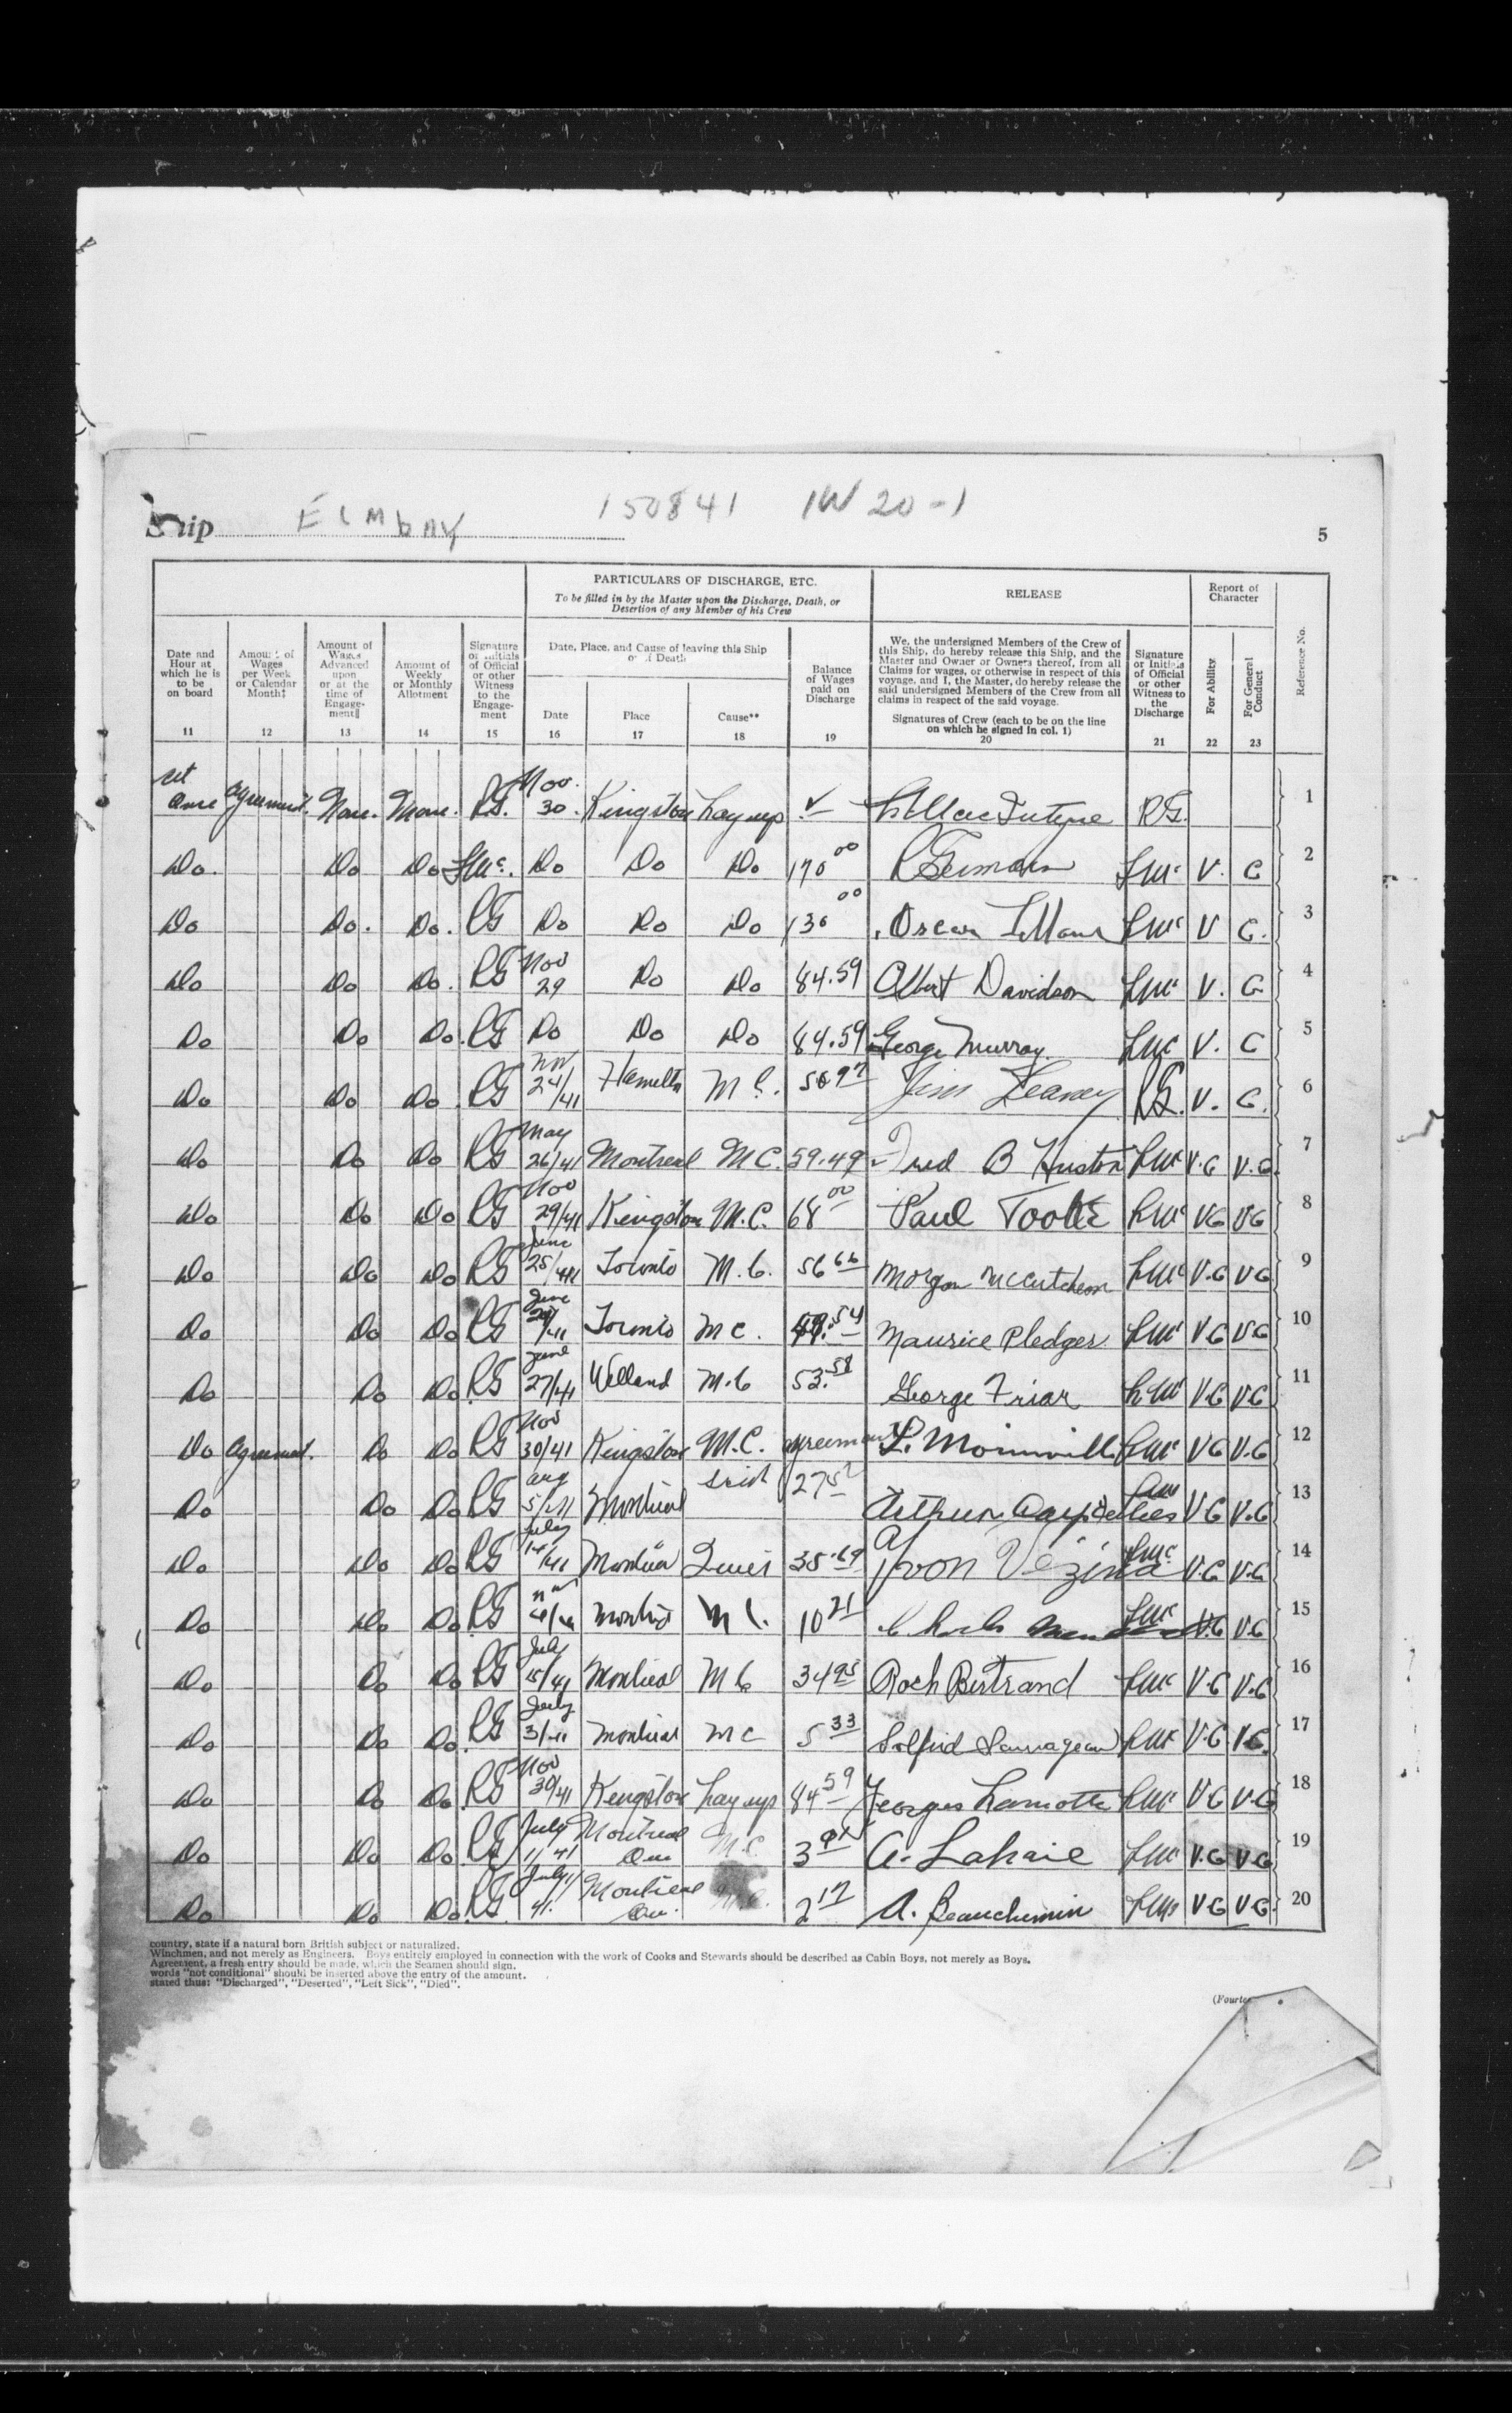 Ship Elmbay 150841 IW 20-1
5
PARTICULARS OF DISCHARGE, ETC.
To be filled in by the Master upon the Discharge, Death, or
Desertion of any Member of his Crew
RELEASE
Report of
Character
Reference No.
Date and
Hour at
which he is
to be
on board
Amount of
Wages
per Week
or Calendar
Month‡
Amount of
Wages
Advanced
upon
or at the
time of
Engage-
ment‖
Amount of
Weekly
or Monthly
Allotment
Signature
or Initials
of Official
or other
Witness
to the
Engage-
ment
Date, Place, and Cause of leaving this Ship
or of Death
Date
Place
Cause**
Balance
of Wages
paid on
Discharge
We, the undersigned Members of the Crew of
this Ship, do hereby release this Ship, and the
Master and Owner or Owners thereof, from all
Claims for wages, or otherwise in respect of this
voyage, and I, the Master, do hereby release the
said undersigned Members of the Crew from all
claims in respect of the said voyage.
Signatures of Crew (each to be on the line
on which he signed in col. 1)
Signature
or Initials
of Official
or other
Witness to
the
Discharge
For Ability
For General
Conduct
11 12 13 14 15 16 17 18 19 20 21 22 23
at once Agreement. None. None. RG. Nov. 30 Kingston Lay up ✓ MacIntyre RG. 1
Do. Do Do LMc. Do Do Do 170 00 LMc V. G 2
Do Do. Do. RG Do Do Do 130 00 Oscar LMc V G. 3
Do Do Do. RG Nov 29 Do Do 84.59 Albert Davidson LMc V. G 4
Do Do Do. RG Do Do Do 84.59 George Murray. LMc V. G 5
Do Do Do RG Nov 24/41 Hamilton M C. 56 97 Jim Leaney RG. V. G. 6
Do Do Do RG May 26/41 Montreal M C. 59.49 Fred B Huston LMc V.G V.G. 7
Do Do Do RG Nov 29/41 Kingston M.C. 68 00 Paul Toole LMc VG VG 8
Do Do Do RG June 25/41 Toronto M.C. 56 66 Morgan McCutcheon LMc V.G VG 9
Do Do Do RG June /41 Toronto M C. .54 Maurice Pledger LMc V G V G 10
Do Do Do RG June 27/41 Welland M.C 53.58 George Friar LMc V.G V.G 11
Do Agreement. Do Do RG Nov 30/41 Kingston M.C. agreement L. LMc V G V.G 12
Do Do Do RG Aug 5/41 Montreal 27 Arthur V G V.G 13
Do Do Do RG July 14/41 Montreal 35.69 Yvon Vézina LMc V.G V.G 14
Do Do Do RG M C. 10 21 LMc V.G V.G 15
Do Do Do RG July 15/41 Montreal M C 34 95 Roch Bertrand LMc V.G V.G 16
Do Do Do RG July 3/41 Montreal M C 5 33 Sauvageau LMc V.G V.G. 17
Do Do Do RG Nov 30/41 Kingston Lay up 84 59 Georges Lamothe LMc V G V G 18
Do Do Do RG July 11/41 Montreal Que M.C. 3 A. Lahaie LMc V.G V.G 19
Do Do Do RG July 11 41. Montreal Que. 2 17 A. Beauchemin LMc V G V G. 20
country, state if a natural born British subject or naturalized.
Winchmen, and not merely as Engineers. Boys entirely employed in connection with the work of Cooks and Stewards should be described as Cabin Boys, not merely as Boys.
Agreement, a fresh entry should be made, which the Seamen should sign.
words "not conditional" should be inserted above the entry of the amount.
stated thus: "Discharged", "Deserted", "Left Sick", "Died".